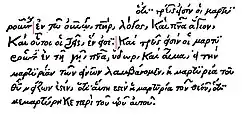 ὅτι τρεῖς εἰσιν οἱ μαρτυ
ροῦν̅ ἐν τῷ οὐνῷ, πηρ, λόγος, καὶ πνα ἅγιον,
καὶ οὗτοι οἱ τρεῖς, ἕν εἰσι. καὶ τρεῖς εἰσιν οἱ μαρτυ
ροῦν̅ ἐν τῇ γῇ, πνα, ὕδωρ, καὶ αἷμα, εἰ τὴν
μαρτυρίαν τῶν ἀνων λαμβάνομεν, ἡ μαρτυρία τοῦ
θυ μείζων ἐστίν, ὅτι αὕτη ἐστὶν ἡ μαρτυρία τοῦ θεοῦ, ὅτι
μεμαρτύρηκε περὶ τοῦ υἱοῦ αὐτοῦ.